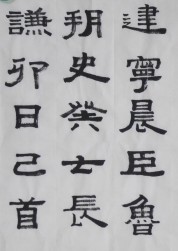 建寧晨臣魯
朔史癸士長
謙卯日己首